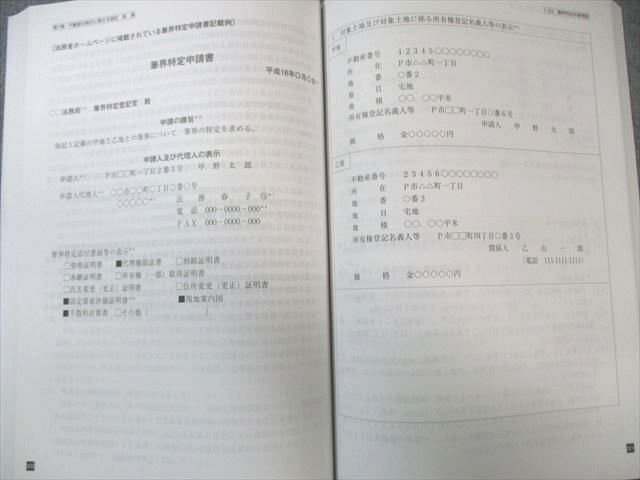 [法務省ホームページに掲載されている筆界特定申請書記載例]
筆界特定申請書
平成18年〇月〇日
〇〇法務局 筆界特定登記官 殿
申請の趣旨
後記1記載の甲地と乙地との筆界について、筆界の特定を求める。
申請人及び代理人の表示
申請人 P市□□町一丁目2番3号 甲野太郎
申請人代理人 〇〇市〇〇町〇丁目〇番〇号
〇〇〇〇〇 法務春子㊞
電話 000-0000-0000
FAX 000-0000-0000
筆界特定添付書面等の表示
□資格証明書 ■代理権限証書 □相続証明書
□承継証明書 □所有権(一部)取得証明書
□氏名変更(更正)証明書 □住所変更(更正)証明書
■固定資産評価証明書 ■現地案内図
■手数料計算書 □その他( )
1 対象土地及び対象土地に係る所有権登記名義人等の表示
甲地
不動産番号 12345〇〇〇〇〇〇〇〇
所在 P市△△町一丁目
地番 〇番2
地目 宅地
地積 〇〇.〇〇平米
所有権登記名義人等 P市□□町一丁目〇番6号
申請人 甲野太郎
価格 金〇〇〇〇〇円
乙地
不動産番号 23456〇〇〇〇〇〇〇〇
所在 P市△△町一丁目
地番 〇番3
地目 宅地
地積 〇〇.〇〇平米
所有権登記名義人等 P市□□町四丁目〇番3号
関係人 乙山一郎
(電話 111-1111-1111)
価格 金〇〇〇〇〇円